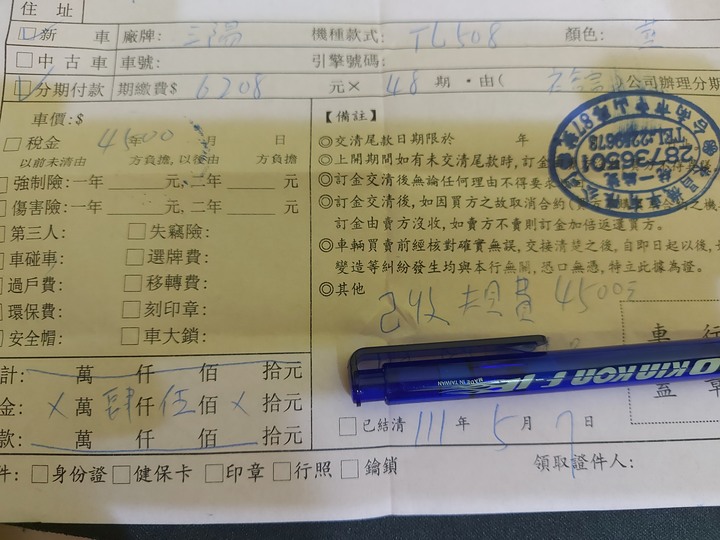 住 址
☑新 車 廠牌: 三陽 機種款式: TL508 顏色: 藍
□中古車 車號: 引擎號碼:
☑分期付款 期繳費$ 6208 元× 48 期・由( )公司辦理分期
車價:$ 4500
□稅金 年 月 日
以前未清由 方負擔,以後由 方負擔
□強制險:一年 元,二年 元
□傷害險:一年 元,二年 元
□第三人: □失竊險:
□車碰車: □選牌費:
□過戶費: □移轉費:
□環保費: □刻印章:
□安全帽: □車大鎖:
計: 萬 仟 佰 拾元
金: × 萬 肆仟 伍佰 × 拾元
款: 萬 仟 佰 拾元
【備註】
◎交清尾款日期限於 年
◎上開期間如有未交清尾款時,訂金
◎訂金交清後無論任何理由不得要求
◎訂金交清後,如因買方之故取消合約
訂金由賣方沒收,如賣方不賣則訂金加倍返還買方。
◎車輛買賣前經核對確實無誤,交接清楚之後,自即日起以後,
變造等糾紛發生均與本行無關,恐口無憑,特立此據為證。
◎其他
已收規費4500元
車 行
蓋 章
KINKON F-1
MADE IN TAIWAN
□已結清 111 年 5 月 7 日
件: □身份證 □健保卡 □印章 □行照 □鑰鎖 領取證件人: